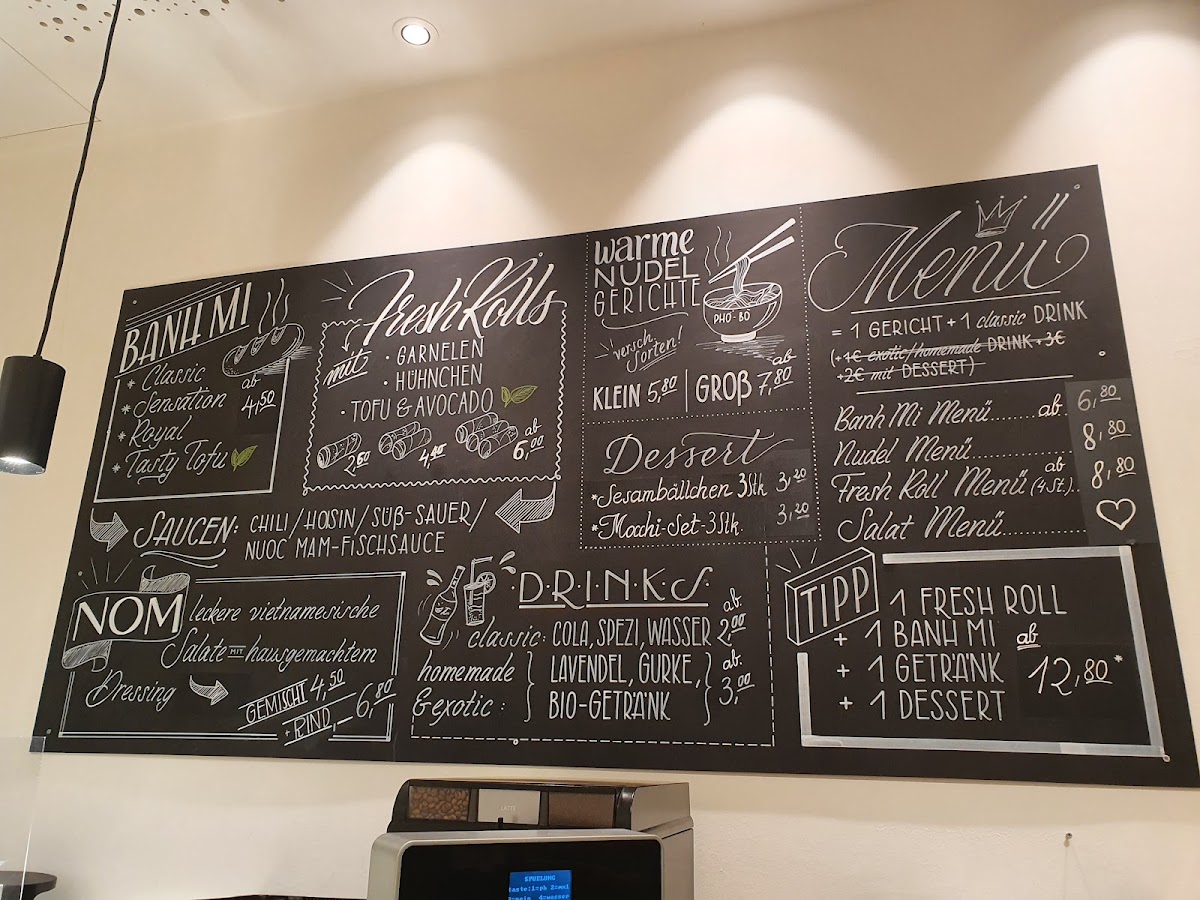 BANH MI
* Classic
* Sensation
* Royal
* Tasty Tofu
ab
4,50
Fresh Rolls
mit
· GARNELEN
· HÜHNCHEN
· TOFU & AVOCADO
2,60
4,40
ab
6,00
SAUCEN: CHILI / HOISIN / SÜß-SAUER /
NUOC MAM-FISCHSAUCE
warme
NUDEL
GERICHTE
versch.
Sorten!
PHO-BO
KLEIN 5,80 | GROß ab 7,80
Dessert
*Sesambällchen 3Stk 3,20
*Mochi-Set-3Stk. 3,20
Menü
= 1 GERICHT + 1 classic DRINK
(+1€ exotic/homemade DRINK +3€
+2€ mit DESSERT)
Banh Mi Menü......... ab 6,80
Nudel Menü.............. 8,80
Fresh Roll Menü (4 St.).. ab 8,80
Salat Menü..............
NOM leckere vietnamesische
Salate MIT hausgemachtem
Dressing
GEMISCHT 4,50
+ RIND 6,80
D·R·I·N·K·S·
classic: COLA, SPEZI, WASSER ab. 2,00
homemade LAVENDEL, GURKE, ab.
& exotic: BIO-GETRÄNK 3,00
TIPP
1 FRESH ROLL
+ 1 BANH MI
+ 1 GETRÄNK
+ 1 DESSERT
ab
12,80*
LATTE
SPUELUNG